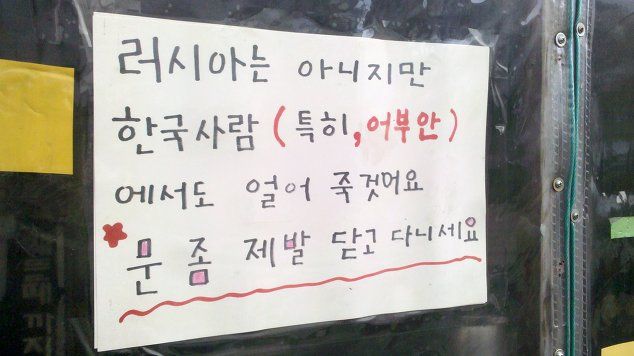 러시아는 아니지만
한국사람 (특히, 어부안)
에서도 얼어 죽겟어요
문 좀 제발 닫고 다니세요